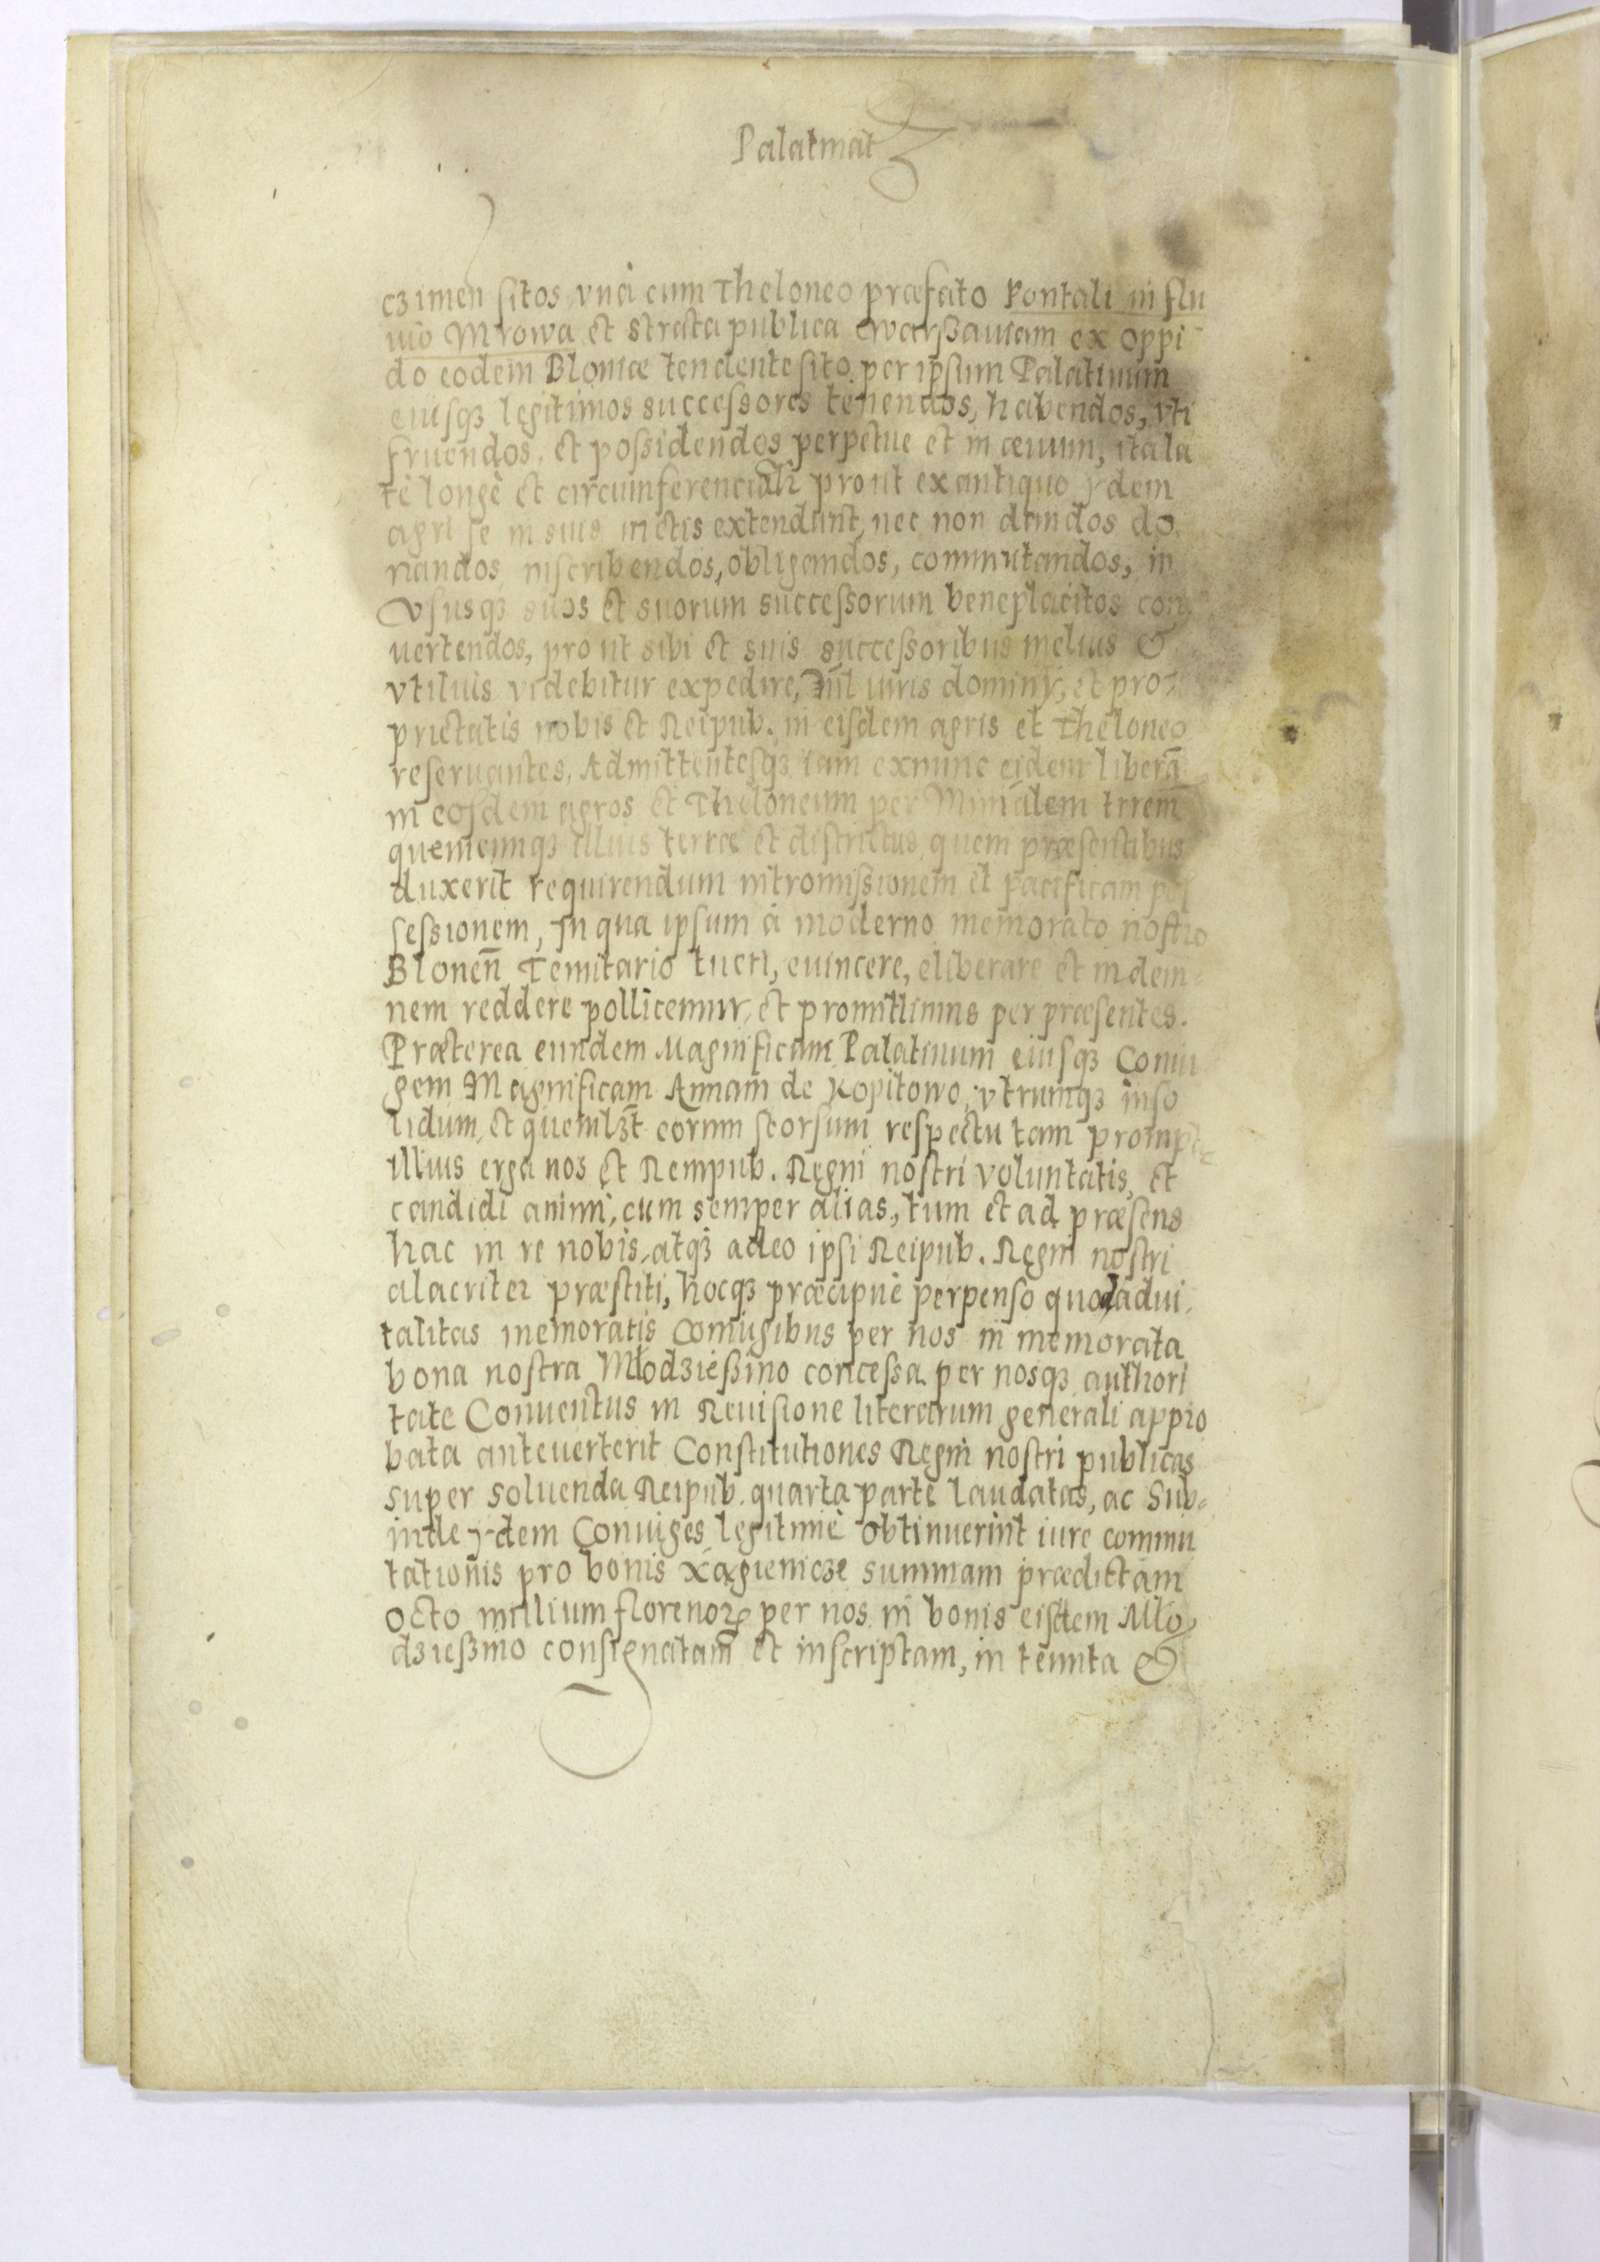 Palatinat
czimen sitos vnà cum Theloneo præfato Pontali in flu
uiō Mrowa et strata publica Warszauiam ex oppi
do eodem Bloniæ tendente sito per ipsum Palatinum
eiusqꝫ legitimos successores tenendos, habendos, vti
fruendos, et possidendos perpetue et in æuum, ita la
tè longè et circumferencialr prout ex antiquo ydem
agri se in suis metis extendunt, nec non dandos do
nandos inscribendos, obligandos, commutandos, in
Vsusqꝫ suos et suorum successorum beneplacitos con
uertendos, prout sibi et suis successoribus melius &
vtilius videbitur expedire, Nil iuris dominy, et pro
prietatis nobis et Reipub. in eisdem agris et Theloneo
reseruantes, Admittentesqꝫ iam exnunc eidem liberā
in eosdem agros et Theloneum per Minīalem trrem
quemcunqꝫ illius terræ et districtus, quem præsentibus
duxerit requirendum intromissionem et pacificam pos
sessionem, In qua ipsum à moderno memorato nostro
Blonen̄ Tenutario tueri, euincere, eliberare et indem-
nem reddere pollicemur, et promittimus per præsentes.
Præterea eundem Magnificum Palatinum eiusqꝫ Coniu
gem Magnificam Annam de Kopitowo, vtrumqꝫ inso
lidum, et quemlꝫt eorum seorsum respectu tam prompte
illius erga nos et Rempub. Regni nostri voluntatis, et
candidi animi, cum semper alias, tum et ad præsens
hac in re nobis, atqꝫ adeo ipsi Reipub. Regni nostri
alacriter præstiti, hocqꝫ præcipuè perpenso quod adui
talitas memoratis Coniugibus per nos in memorata
bona nostra Młodzieszino concessa per nosqꝫ authori
tate Conuentus in Reuisione literarum generali appro
bata anteuerterit Constitutiones Regni nostri publicas
super soluenda Reipub. quarta parte laudatas, ac Sub-
inde ydem Coniuges legitimè obtinuerint iure commu
tationis pro bonis Xągienicze summam prædictam
octo millium florenoꝝ per nos in bonis eisdem Mło
dzieszino consignatam et inscriptam, in tenuta &